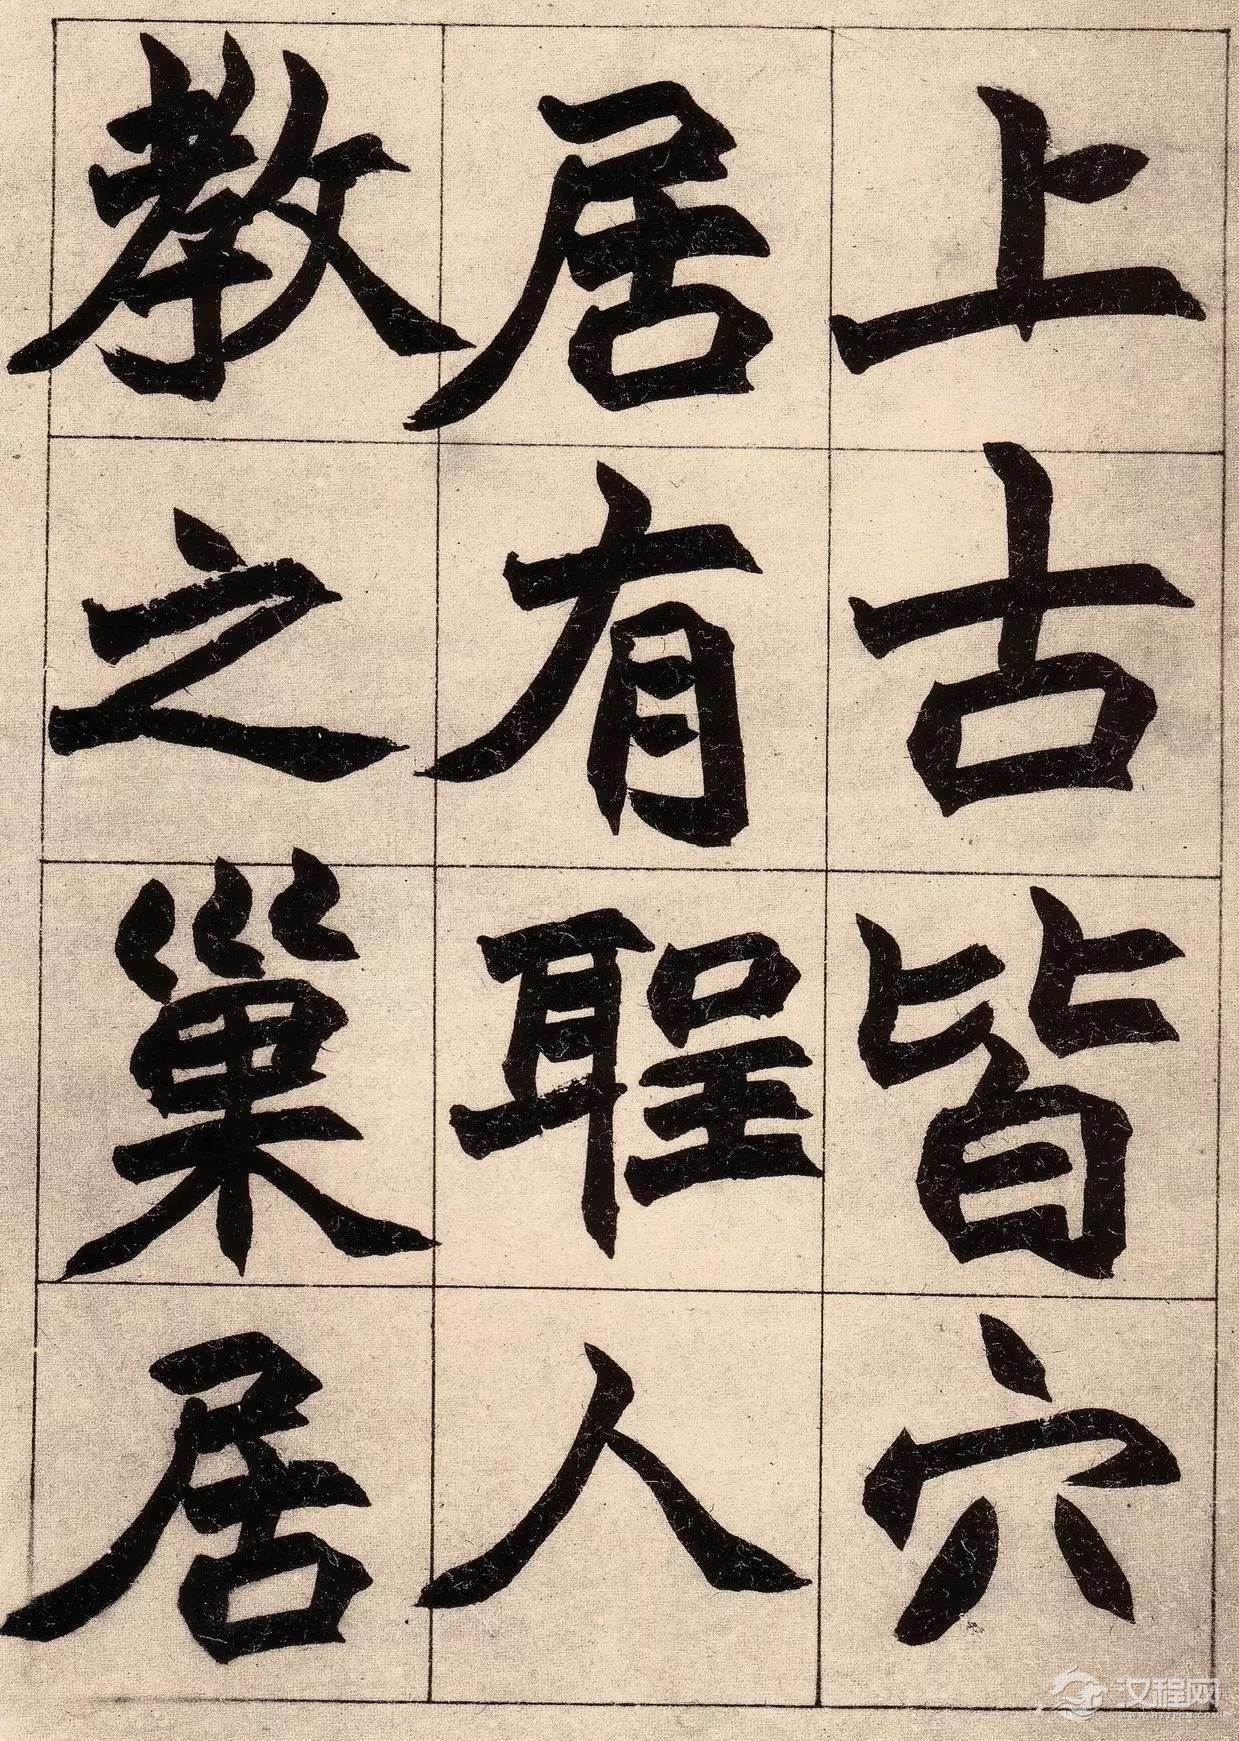 上古皆穴
居有聖人
教之巢居
汉程网